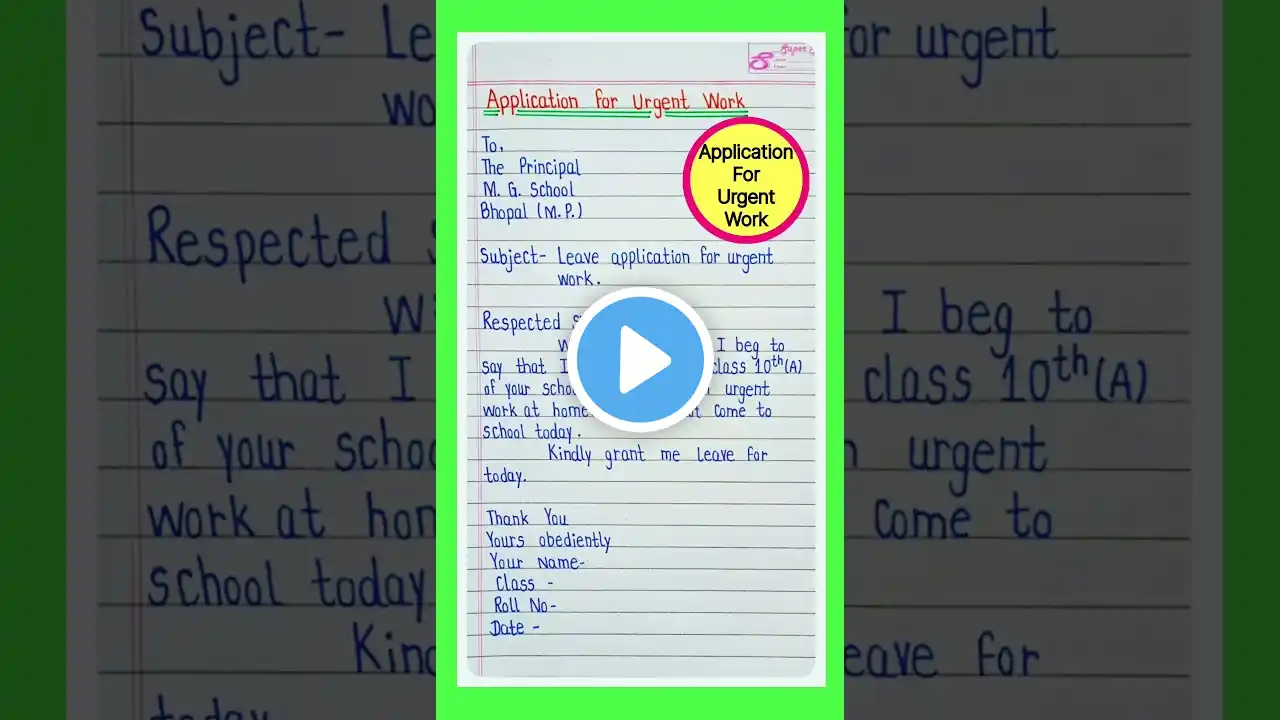 Super
Application for Urgent Work
To,
The Principal
M. G. School
Bhopal (M.P.)
Application
For
Urgent
Work
Subject- Leave application for urgent
work.
Respected
I beg to
say that I class 10th(A)
of your urgent
work at home come to
school today.
Kindly grant me leave for
today.
Thank You
Yours obediently
Your Name-
Class -
Roll No-
Date -